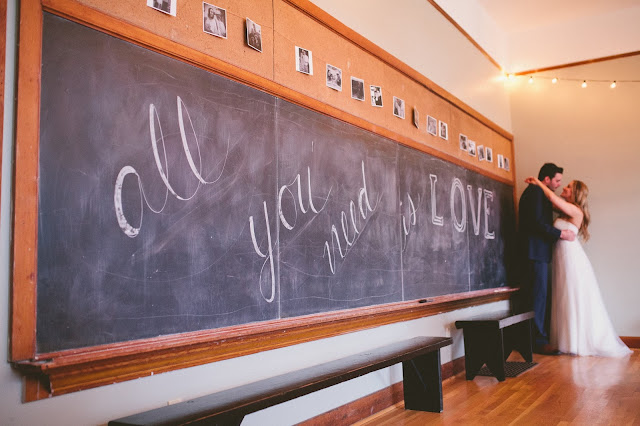 all you need is LOVE